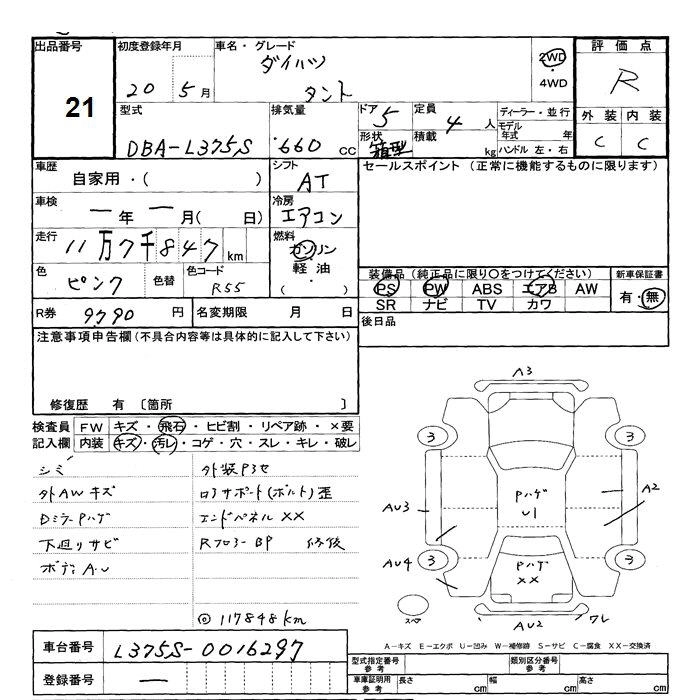 出品番号
21
初度登録年月
20 5月
車名・グレード
ダイハツ
タント
2WD
・
4WD
評価点
R
外装 内装
C C
型式
DBA-L375S
排気量
・660 cc
ドア 5
形状
箱型
定員 4 人
積載 kg
ディーラー・並行
モデル年式 年
ハンドル 左・右
車歴
自家用・( )
シフト
AT
セールスポイント (正常に機能するものに限ります)
車検
ー年ー月( 日)
冷房
エアコン
走行
11万7千847km
燃料
ガソリン
軽油
( ・ )
色
ピンク
色替
色コード
R55
装備品 (純正品に限り○をつけてください)
PS PW ABS エアB AW
SR ナビ TV カワ
新車保証書
有・無
R券 9790 円
名変期限 月 日
後日品
注意事項申告欄(不具合内容等は具体的に記入して下さい)
修復歴 有 〔箇所 〕
検査員記入欄
FW キズ・飛石・ヒビ割・リペア跡・×要
内装 キズ・汚レ・コゲ・穴・スレ・キレ・破レ
シミ
外AWキズ
DミラーPハゲ
下廻リサビ
ボディA.U
外装Pヨセ
ロアサポート(ボルト)歪
エンドパネルXX
Rフロアー BP 修後
◎117848km
A3
3 3
AU3
Pハゲ
U1
A2
AU4
3 3
Pハゲ
XX
スペア
AU2
ワレ
A−キズ E−エクボ U−凹み W−補修跡 S−サビ C−腐食 XX−交換済
車台番号
L375S-0016297
登録番号
ー
型式指定番号
参考
類別区分番号
参考
車庫証明用
参考
長さ cm
幅 cm
高さ cm